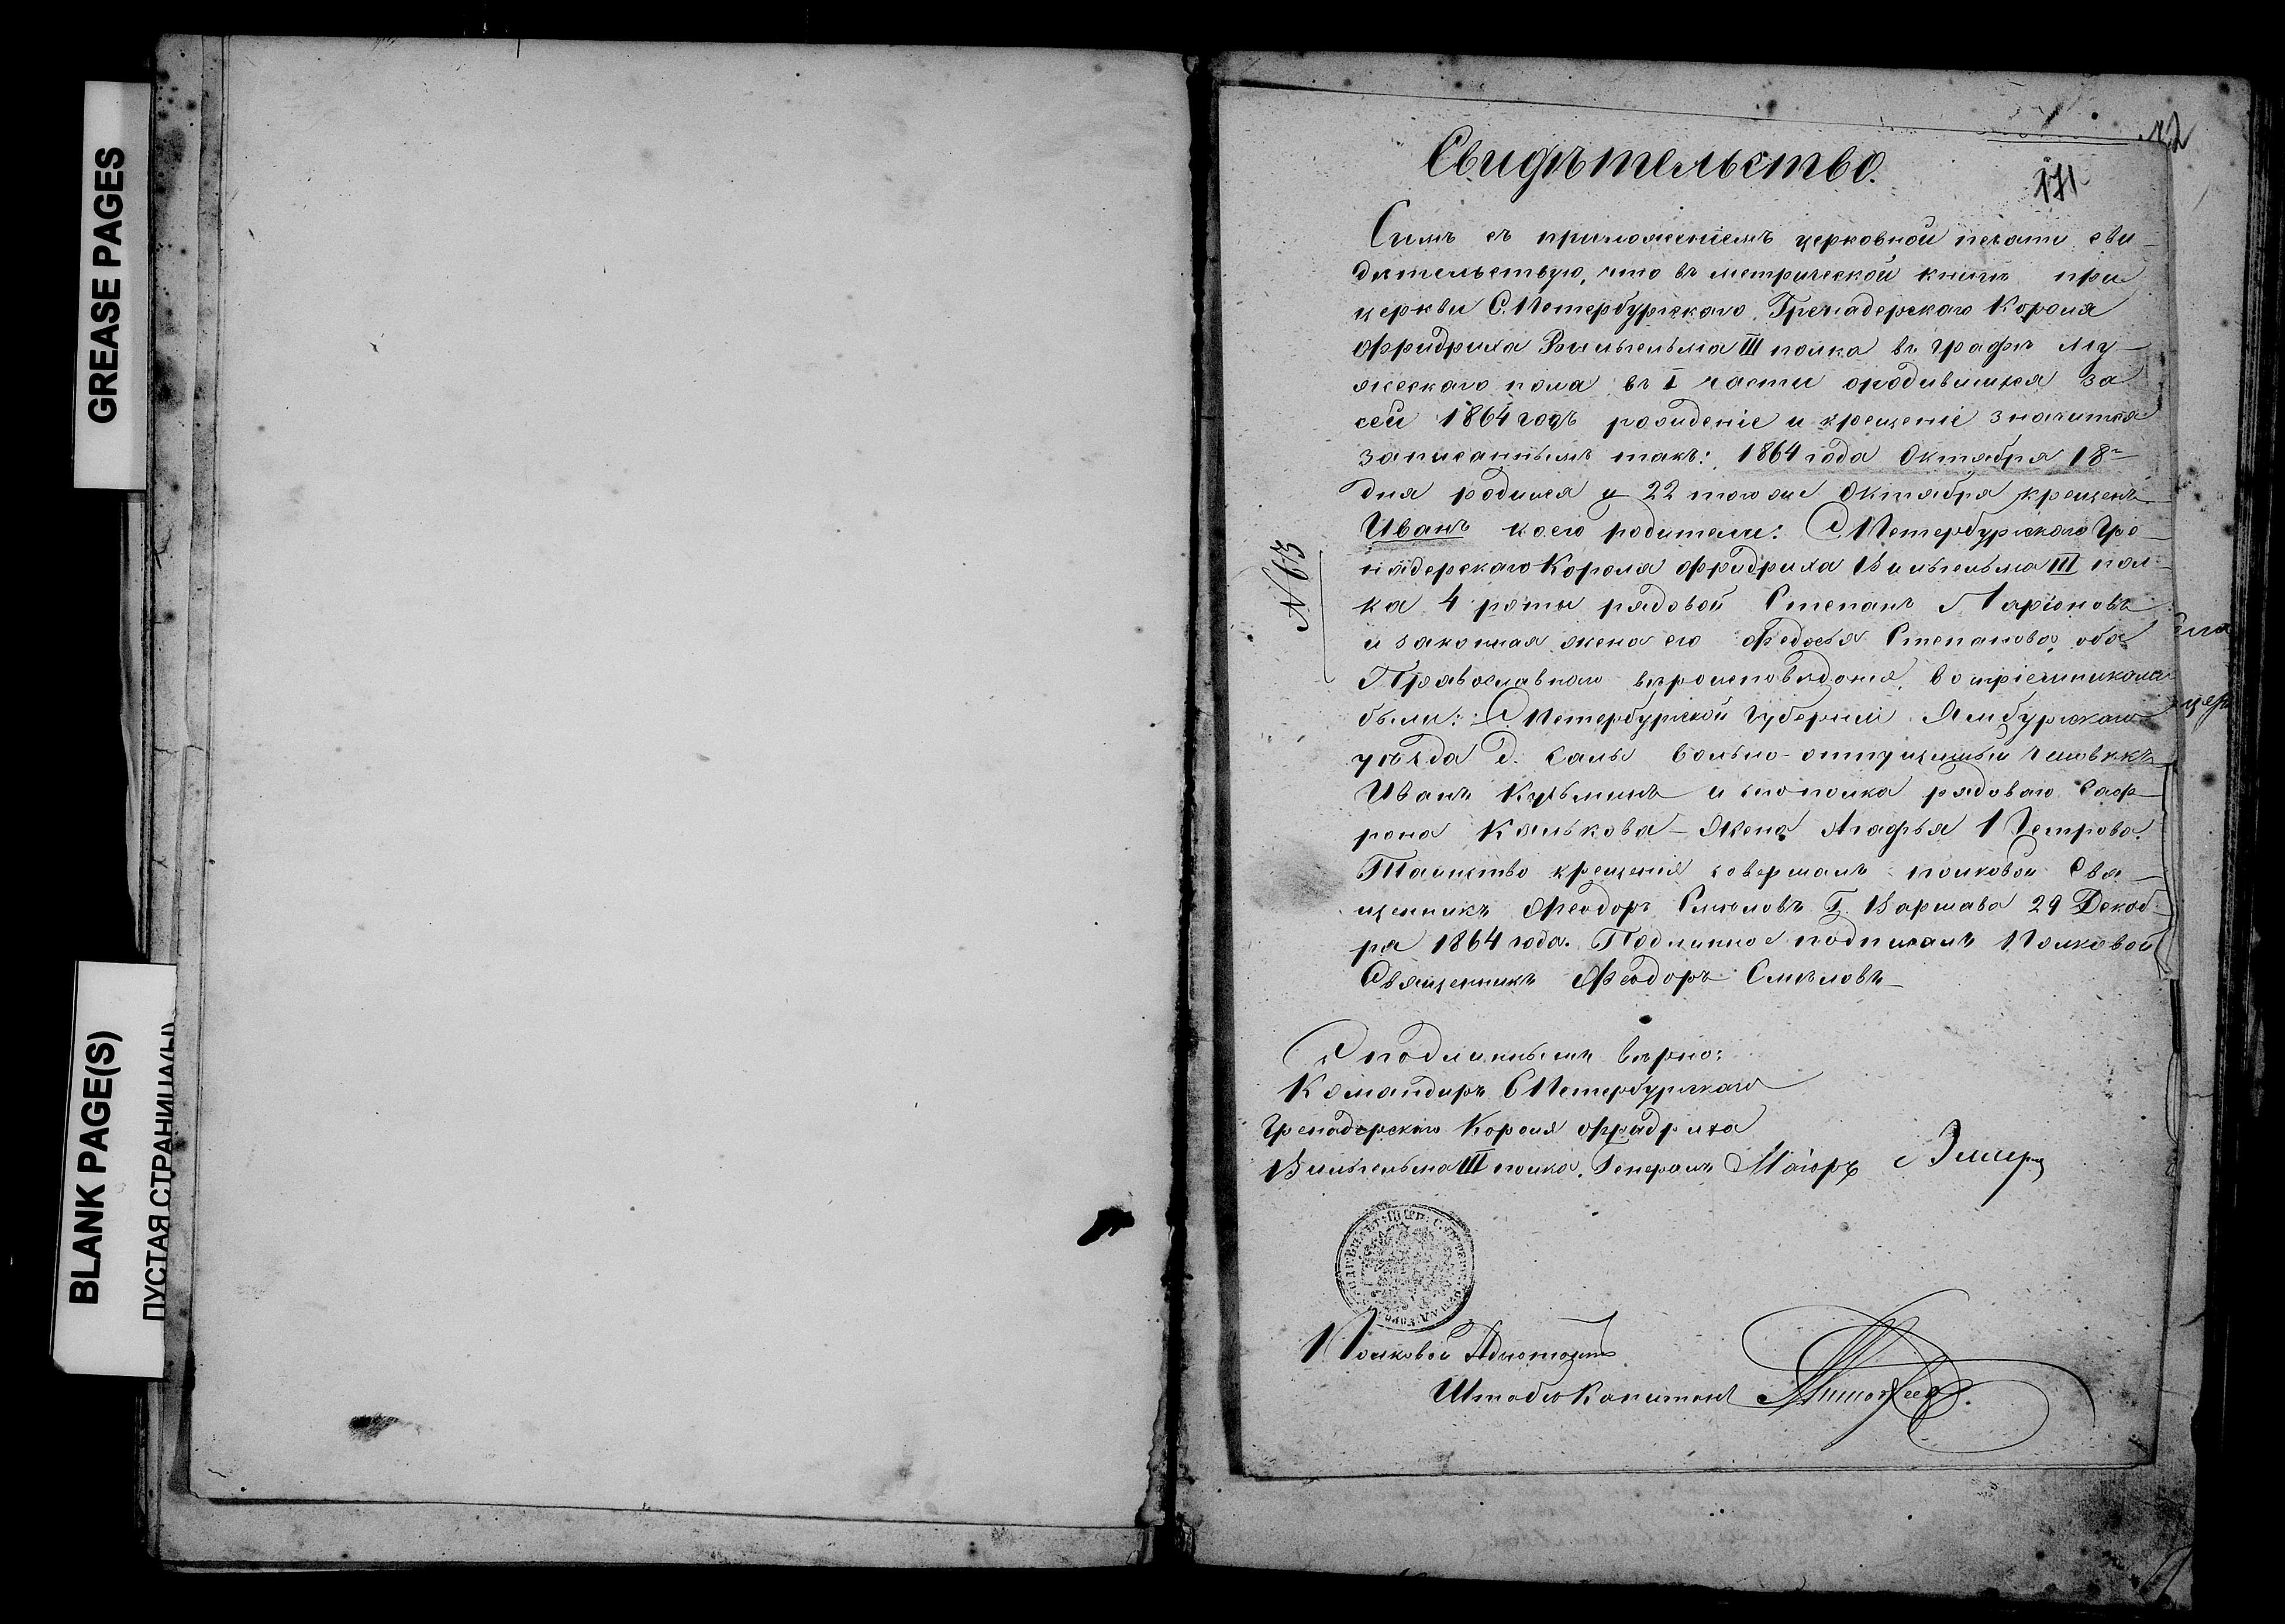 GREASE PAGES
BLANK PAGE(S)
ПУСТАЯ СТРАНИЦА(Ы)
Свидѣтельство.
171
Симъ съ приложеніемъ церковной печати сви-
дѣтельствую, что въ метрической книгѣ при
церкви С.Петербургскаго Гренадерскаго Короля
Фридриха Вильгельма III полка въ графѣ му-
жескаго пола въ I части о родившихся за
сей 1864 годъ рожденіе и крещеніе значится
записаннымъ такъ: 1864 года Октября 18го
дня родился и 22 того же Октября крещенъ
Иванъ коего родители: С.Петербургскаго Гре-
надерскаго Короля Фридриха Вильгельма III пол-
ка 4 роты рядовой Степанъ Ларіоновъ
и законная жена его Федосья Степанова, оба
Православнаго вѣроисповѣданія, воспріемниками
были: С.Петербургской Губерніи Ямбургскаго
уѣзда д. Салы вольно-отпущенный человѣкъ
Иванъ Кузьминъ и сего полка рядоваго Саф-
рона Калькова - жена Агафья Петрова.
Таинство крещенія совершалъ полковой Свя-
щенникъ Феодоръ Смѣловъ Г. Варшава 29 Декаб-
ря 1864 года. Подлинное подписалъ Полковой
Священникъ Феодоръ Смѣловъ
№ 63
Съ подлиннымъ вѣрно:
Командиръ С.Петербургскаго
Гренадерскаго Короля Фридриха
Вильгельма III полка, Генералъ Маіоръ
Полковой Адъютантъ
Штабсъ Капитанъ